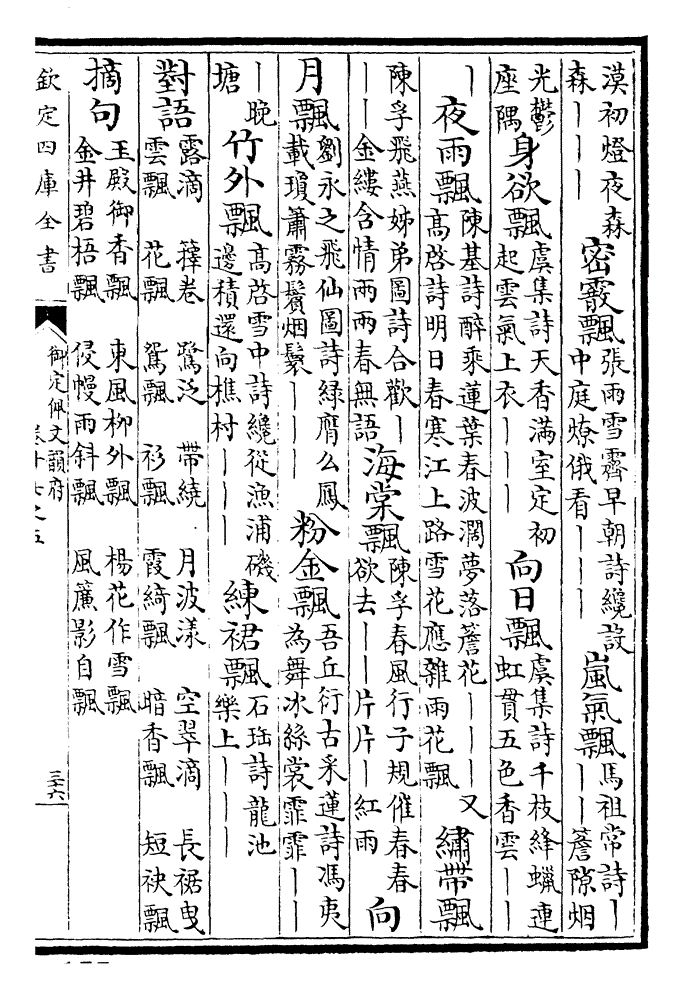 漠初燈夜森
森｜｜｜
密霰飄
張雨雪霽早朝詩纔設
中庭燎俄看｜｜｜
嵐氣飄
馬祖常詩｜
｜｜簷隙烟
光鬱
座隅
身欲飄
虞集詩天香滿室定初
起雲氣上衣｜｜｜
向日飄
虞集詩千枝絳蠟連
虹貫五色香雲｜｜
｜
夜雨飄
陳基詩醉乘蓮葉春波濶夢落簷花｜｜｜又
高啓詩明日春寒江上路雪花應雜雨花飄
繡帶飄
陳孚飛燕姊弟圖詩合歡｜
｜｜金縷含情兩兩春無語
海棠飄
陳孚春風行子規催春春
欲去｜｜片片｜紅雨
向月飄
劉永之飛仙圖詩綠膺么鳳
載瓊簫霧鬢烟鬟｜｜｜
粉金飄
吾丘衍古采蓮詩馮夷
為舞冰絲裳霏霏｜｜
｜晚
塘
竹外飄
高啓雪中詩纔從漁浦磯
邊積還向樵村｜｜｜
練裙飄
石珤詩龍池
樂上｜｜｜
對語
露滴 籜卷 鷺泛 帶繞 月波漾 空翠滴 長裾曳
雲飄 花飄 鴛飄 衫飄 霞綺飄 暗香飄 短袂飄
摘句
玉殿御香飄 東風柳外飄 楊花作雪飄
金井碧梧飄 侵幔雨斜飄 風簾影自飄
欽定四庫全書
御定佩文韻府
卷十七之五
三十六